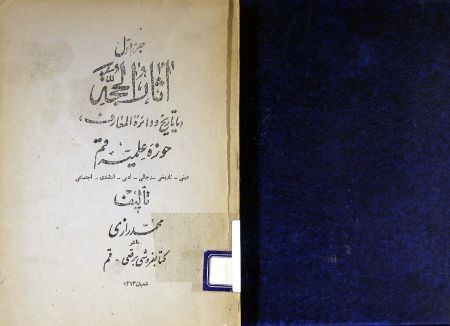 جزء اول
آثار الحجة
یا تاریخ و دائرة المعارف
حوزه علمیه قم
دینی - تاریخی - رجالی - ادبی - انتقادی - اجتماعی
تألیف
محمد رازی
ناشر
کتابفروشی برقعی - قم
شعبان ۱۳۷۳